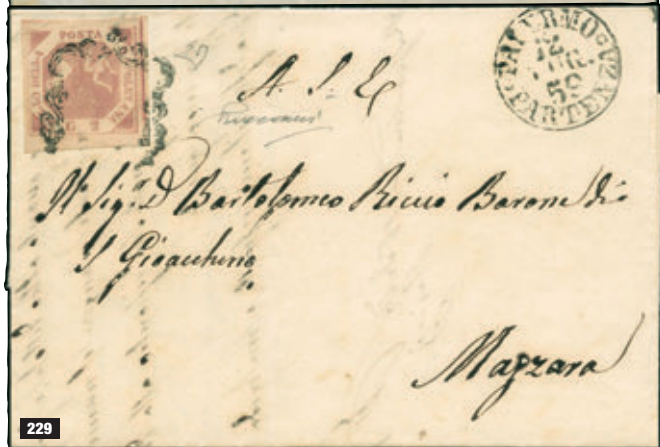 POSTA
A. S. E.
PALERMO
12
59
PARTENZA
Al Sig. D. Bartolomeo Riccio Barone di
S. Gioacchino
Mazzara
229